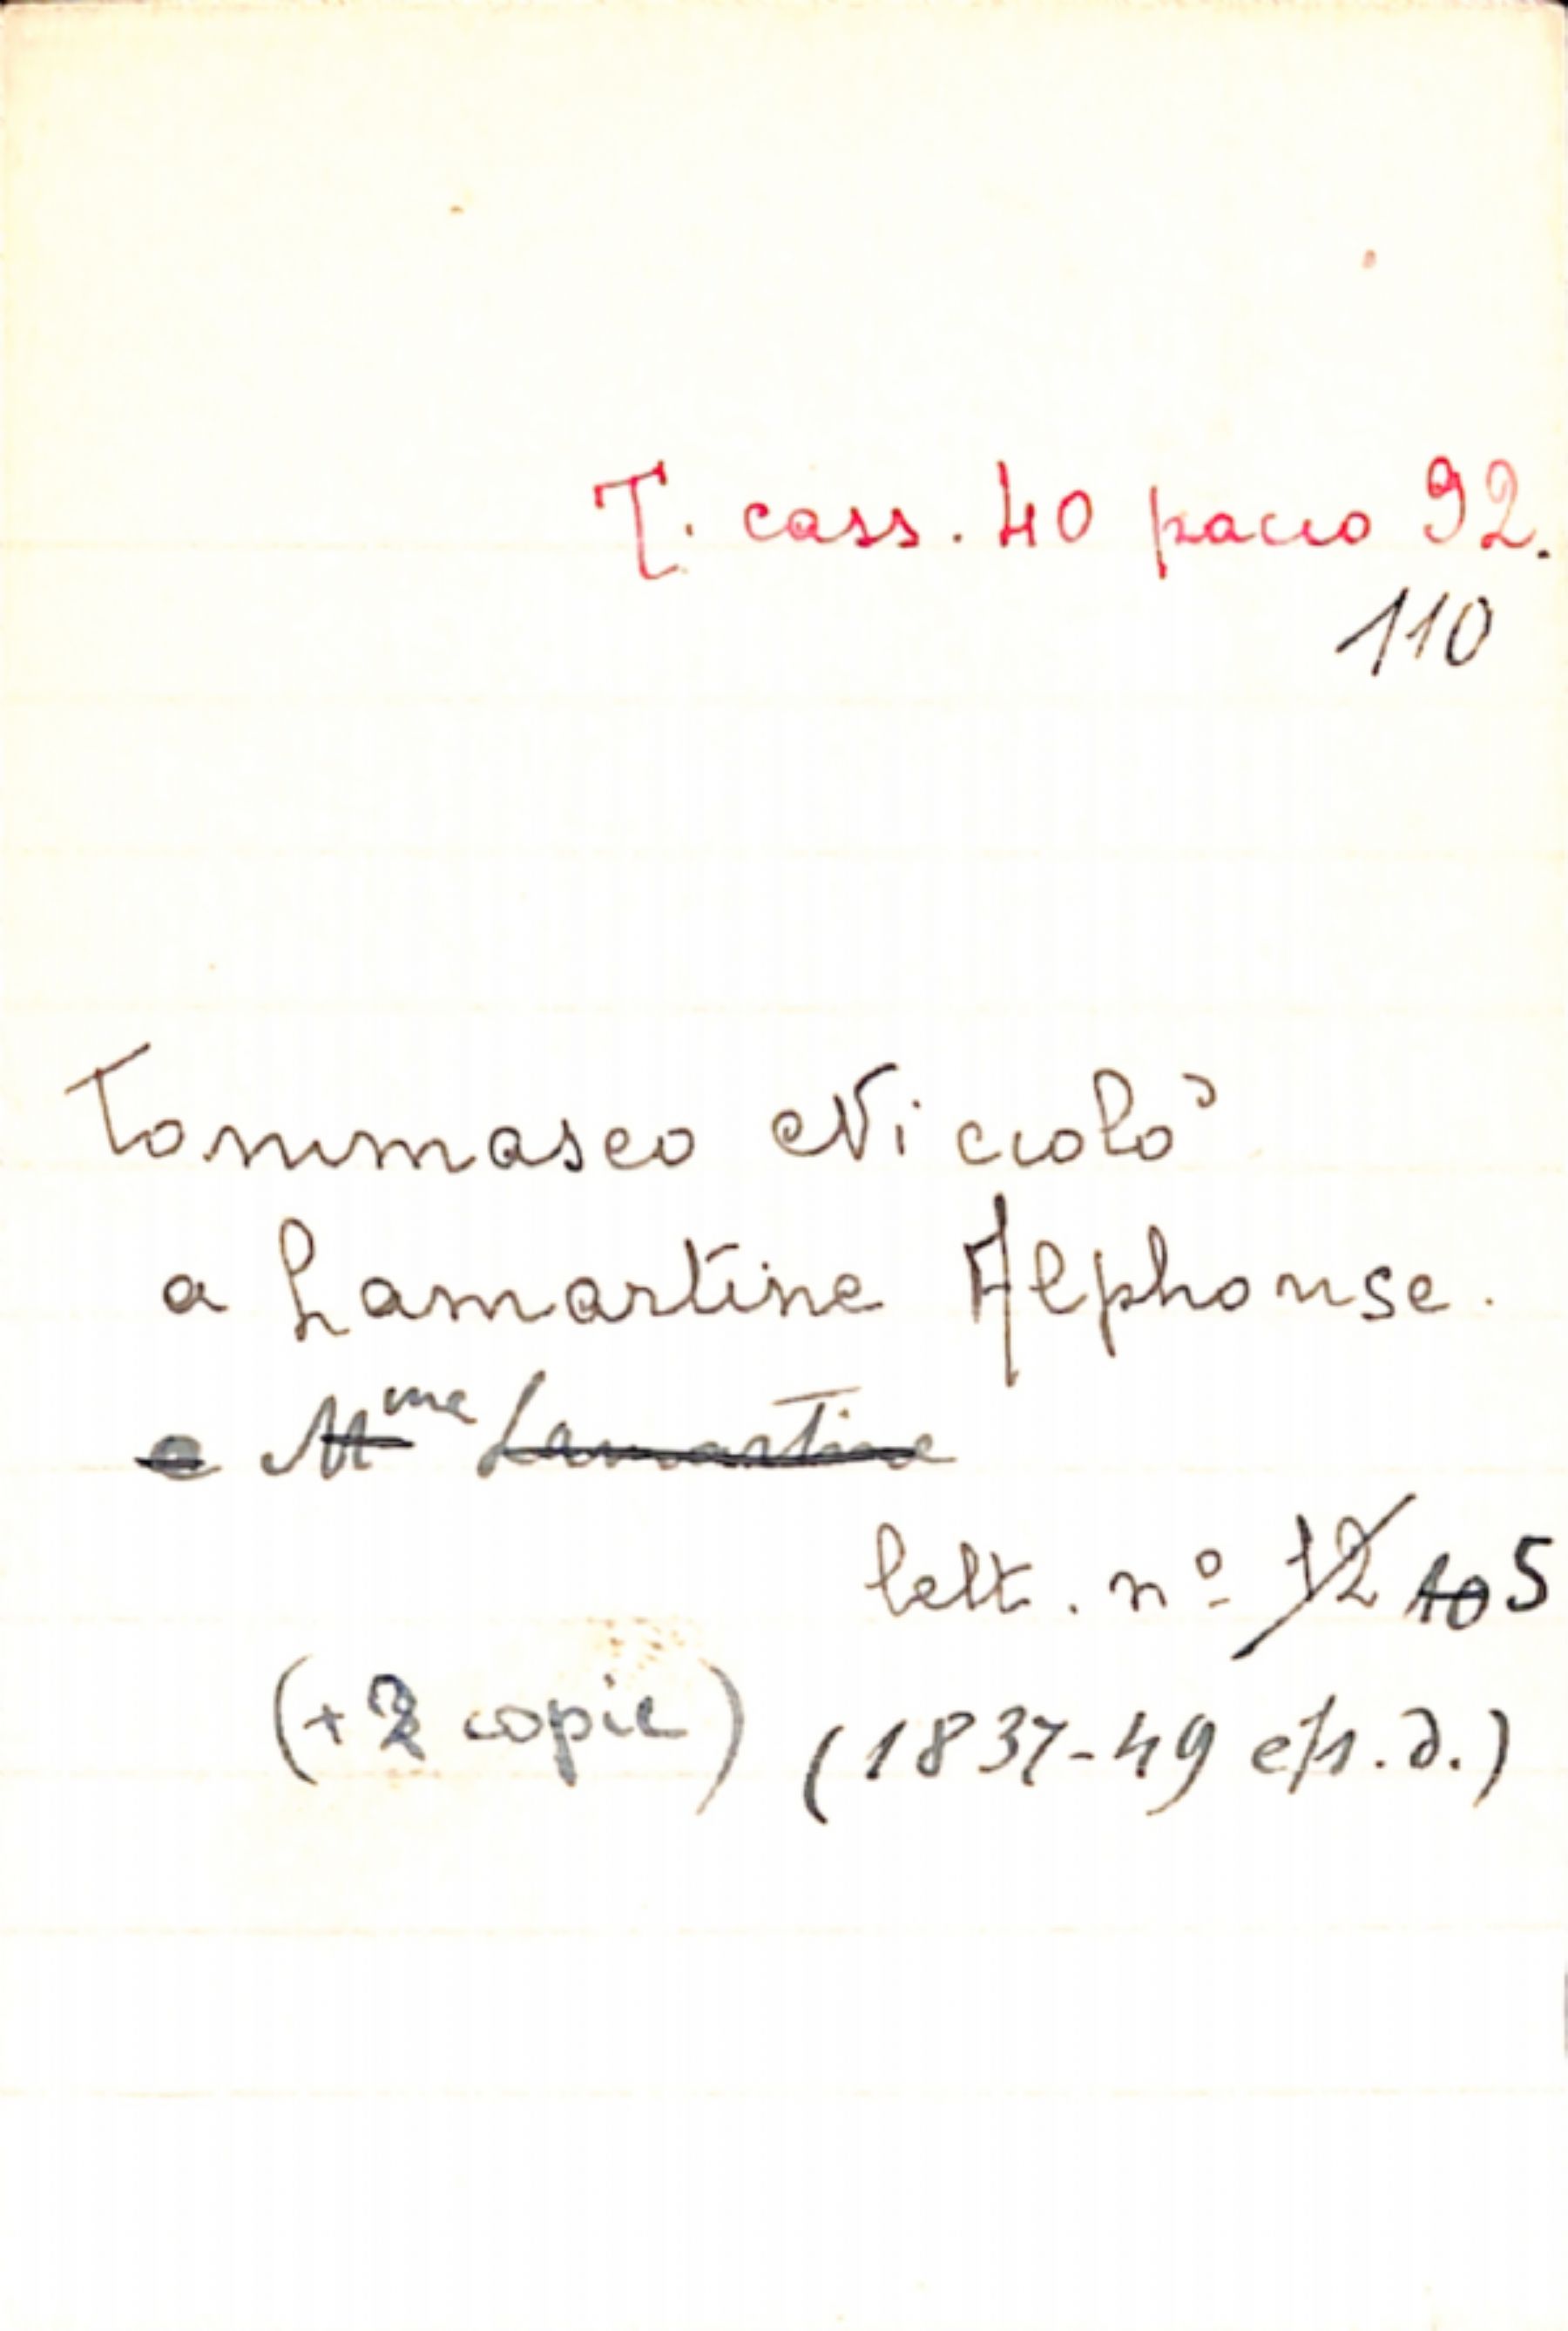 T. cass. 40 pacco 92.
110
Tommaseo Niccolò
a Lamartine Alphonse.
e Mme Lamartine
lett. nº 12 10 5
(+2 copie) (1837-49 e s.d.)